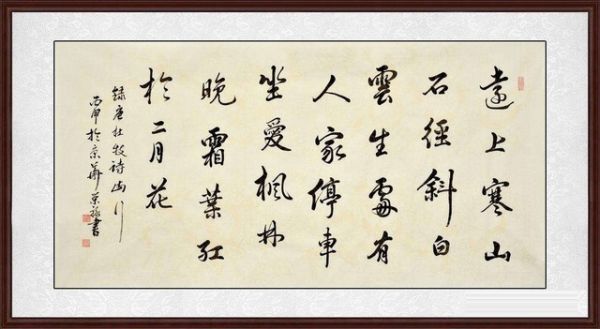 遠上寒山
石徑斜白
雲生處有
人家停車
坐愛楓林
晚霜葉紅
於二月花
錄唐杜牧诗山行
丙申於京華書